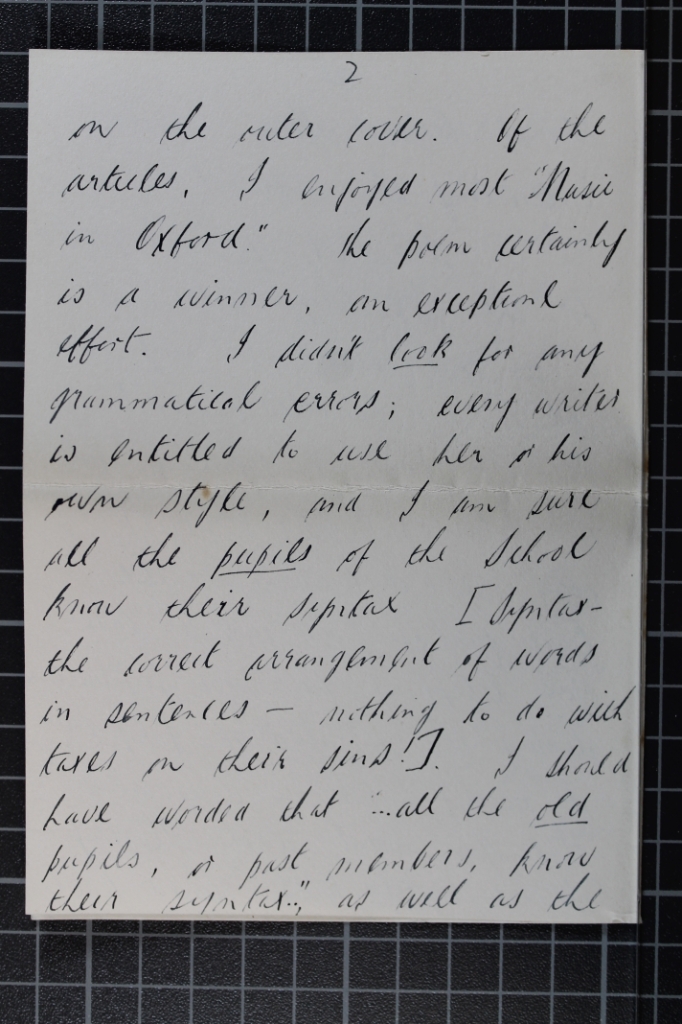 2
on the outer cover. Of the
articles, I enjoyed most "Music
in Oxford." The poem certainly
is a winner, an exceptional
effort. I didn't look for any
grammatical errors; every writer
is entitled to use her or his
own style, and I am sure
all the pupils of the School
know their syntax [Syntax-
the correct arrangement of words
in sentences — nothing to do with
taxes on their sins!]. I should
have worded that "...all the old
pupils, or past members, know
their syntax..", as well as the